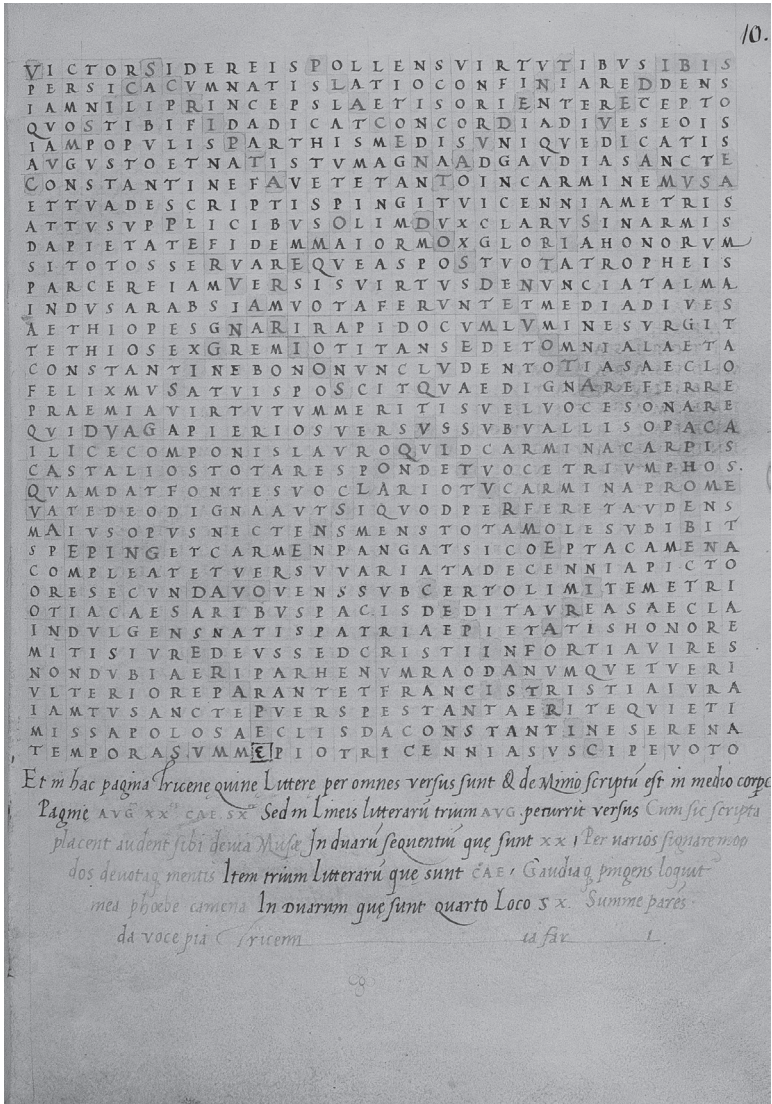 10.
VICTORSIDEREISPOLLENSVIRTVTIBVSIBIS
PERSICACVMNATISLATIOCONFINIAREDDENS
IAMNILIPRINCEPSLAETISORIENTERECEPTO
QVOSTIBIFIDADICATCONCORDIADIVESEOIS
IAMPOPVLISPARTHISMEDISVNIQVEDICATIS
AVGVSTOETNATISTVMAGNAADGAVDIASANCTE
CONSTANTINEFAVETETANTOINCARMINEMVSA
ETTVADESCRIPTISPINGITVICENNIAMETRIS
ATTVSVPPLICIBVSOLIMDVXCLARVSINARMIS
DAPIETATEFIDEMMAIORMOXGLORIAHONORVM
SITOTOSSERVAREQVEASPOSTVOTATROPHEIS
PARCEREIAMVERSISVIRTVSDENVNCIATALMA
INDVSARABSIAMVOTAFERVNTETMEDIADIVES
AETHIOPESGNARIRAPIDOCVMLVMINESVRGIT
TETHIOSEXGREMIOTITANSEDETOMNIALAETA
CONSTANTINEBONONVNCLVDENTOTIASAECLO
FELIXMVSATVISPOSCITQVAEDIGNAREFERRE
PRAEMIAVIRTVTVMMERITISVELVOCESONARE
QVIDVAGAPIERIOSVERSVSSVBVALLISOPACA
ILICECOMPONISLAVROQVIDCARMINACARPIS
CASTALIOSTOTARESPONDETVOCETRIVMPHOS.
QVAMDATFONTESVOCLARIOTVCARMINAPROME
VATEDEODIGNAAVTSIQVODPERFERETAVDENS
MAIVSOPVSNECTENSMENSTOTAMOLESVBIBIT
SPEPINGETCARMENPANGATSICOEPTACAMENA
COMPLEATETVERSVVARIATADECENNIAPICTO
ORESECVNDAVOVENSSVBCERTOLIMITEMETRI
OTIACAESARIBVSPACISDEDITAVREASAECLA
INDVLGENSNATISPATRIAEPIETATISHONORE
MITISIVREDEVSSEDCRISTIINFORTIAVIRES
NONDVBIAERIPARHENVMRAODANVMQVETVERI
VLTERIOREPARANTETFRANCISTRISTIAIVRA
IAMTVSANCTEPVERSPESTANTAERITEQVIETI
MISSAPOLOSAECLISDACONSTANTINESERENA
TEMPORASVMMEPIOTRICENNIASVSCIPEVOTO
Et in hac pagina Tricene quine Littere per omnes versus sunt & de Minio scriptũ est in medio corpo
Pagine AVG XX CAE. SX Sed in Lineis litterarũ trium AVG. percurrit versus Cum sic scripta
placent audent sibi devia Musæ In duarũ sequentiũ quę sunt XXI Per varios signare mo
dos devotaq mentis Item trium Litterarũ que sunt CAE, Gaudia q pingens loquit
mea phoebe camena In Duarum quę sunt quarto Loco S X. Summe pares
da voce pia Tricenn ia far 1.